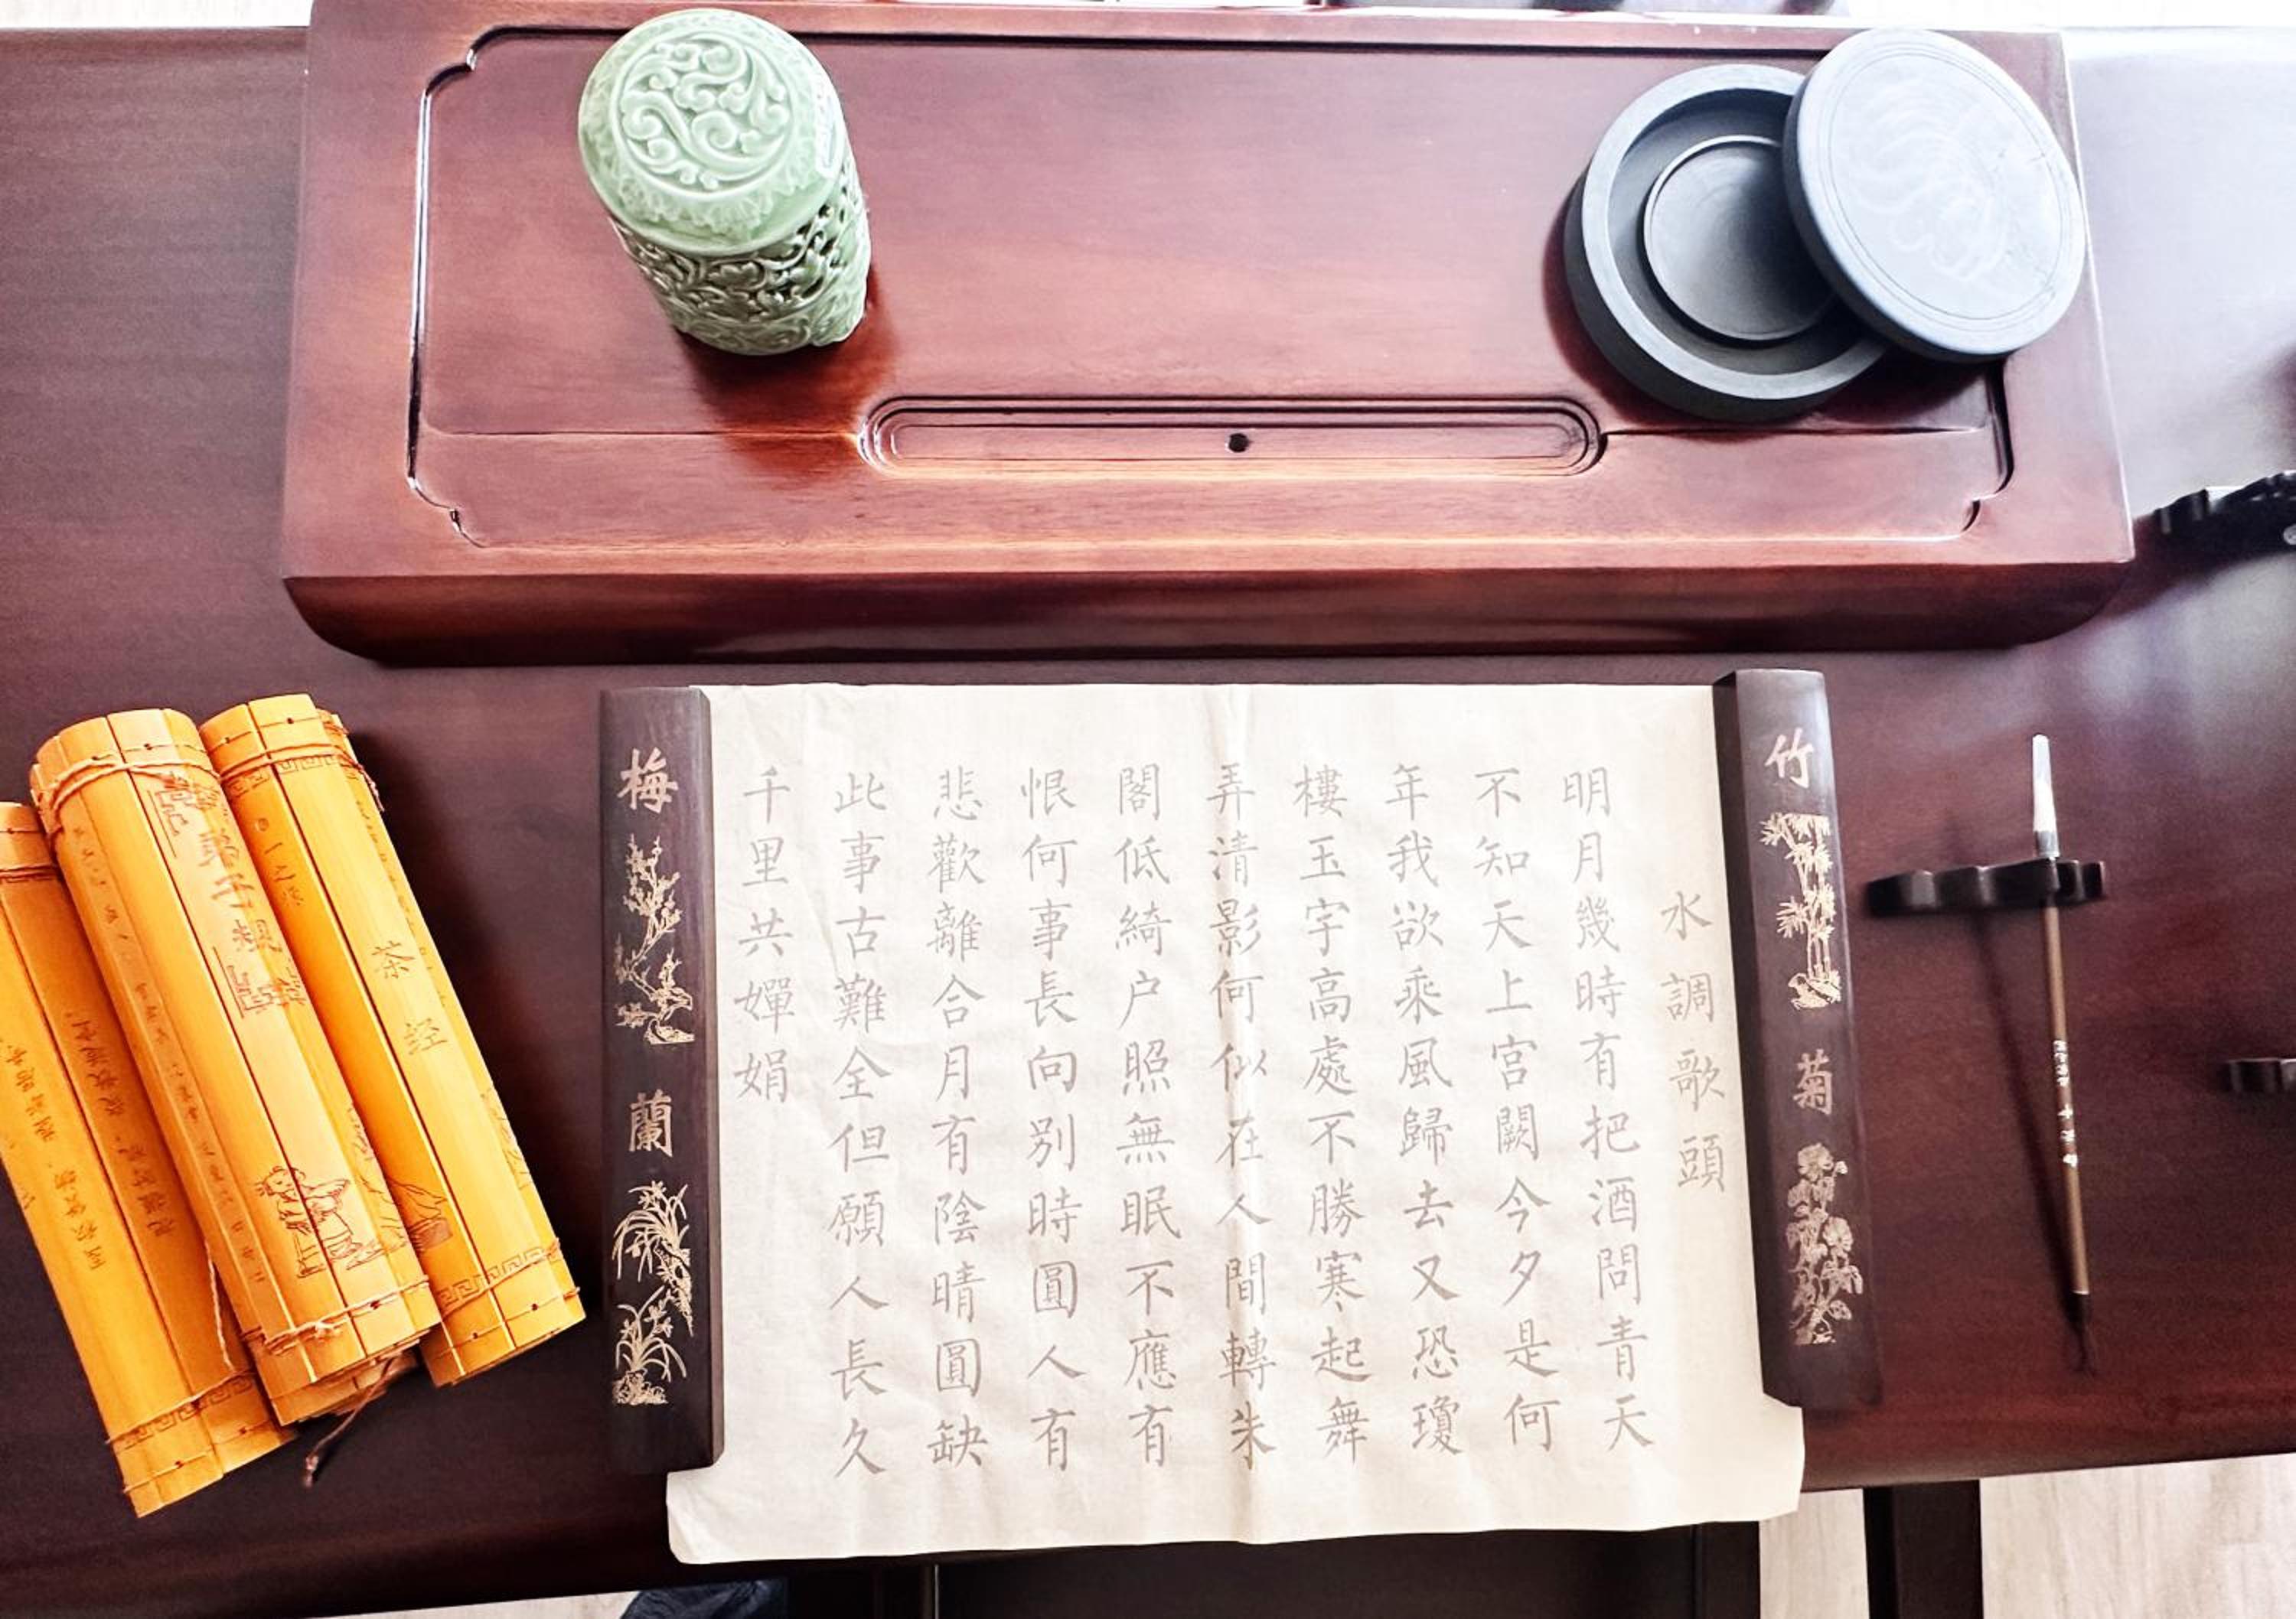 水調歌頭
明月幾時有把酒問青天
不知天上宮闕今夕是何
年我欲乘風歸去又恐瓊
樓玉宇高處不勝寒起舞
弄清影何似在人間轉朱
閣低綺户照無眠不應有
恨何事長向别時圓人有
悲歡離合月有陰晴圓缺
此事古難全但願人長久
千里共嬋娟
竹菊
梅蘭
茶经
弟子规